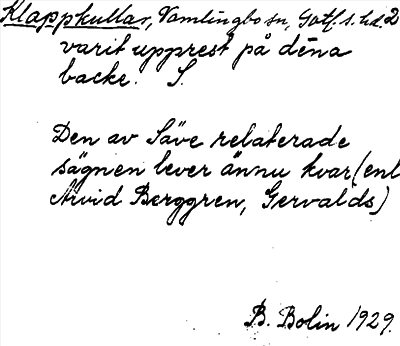 Klappkullar, Vamlingbo sn, Gotl. s. hd. 2
varit upprest på dēna
backe. S.
Den av Säve relaterade
sägnen lever ännu kvar (enl
Arvid Berggren, Gervalds)
B. Bolin 1929.